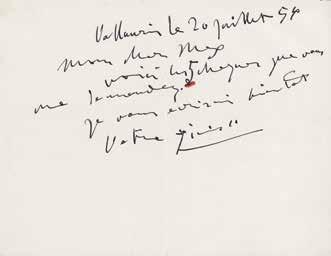 Vallauris le 20 juillet 54
Mon cher Max
voici les 5 cheques que vous
me demandez.
je vous écrirai bientot
Votre